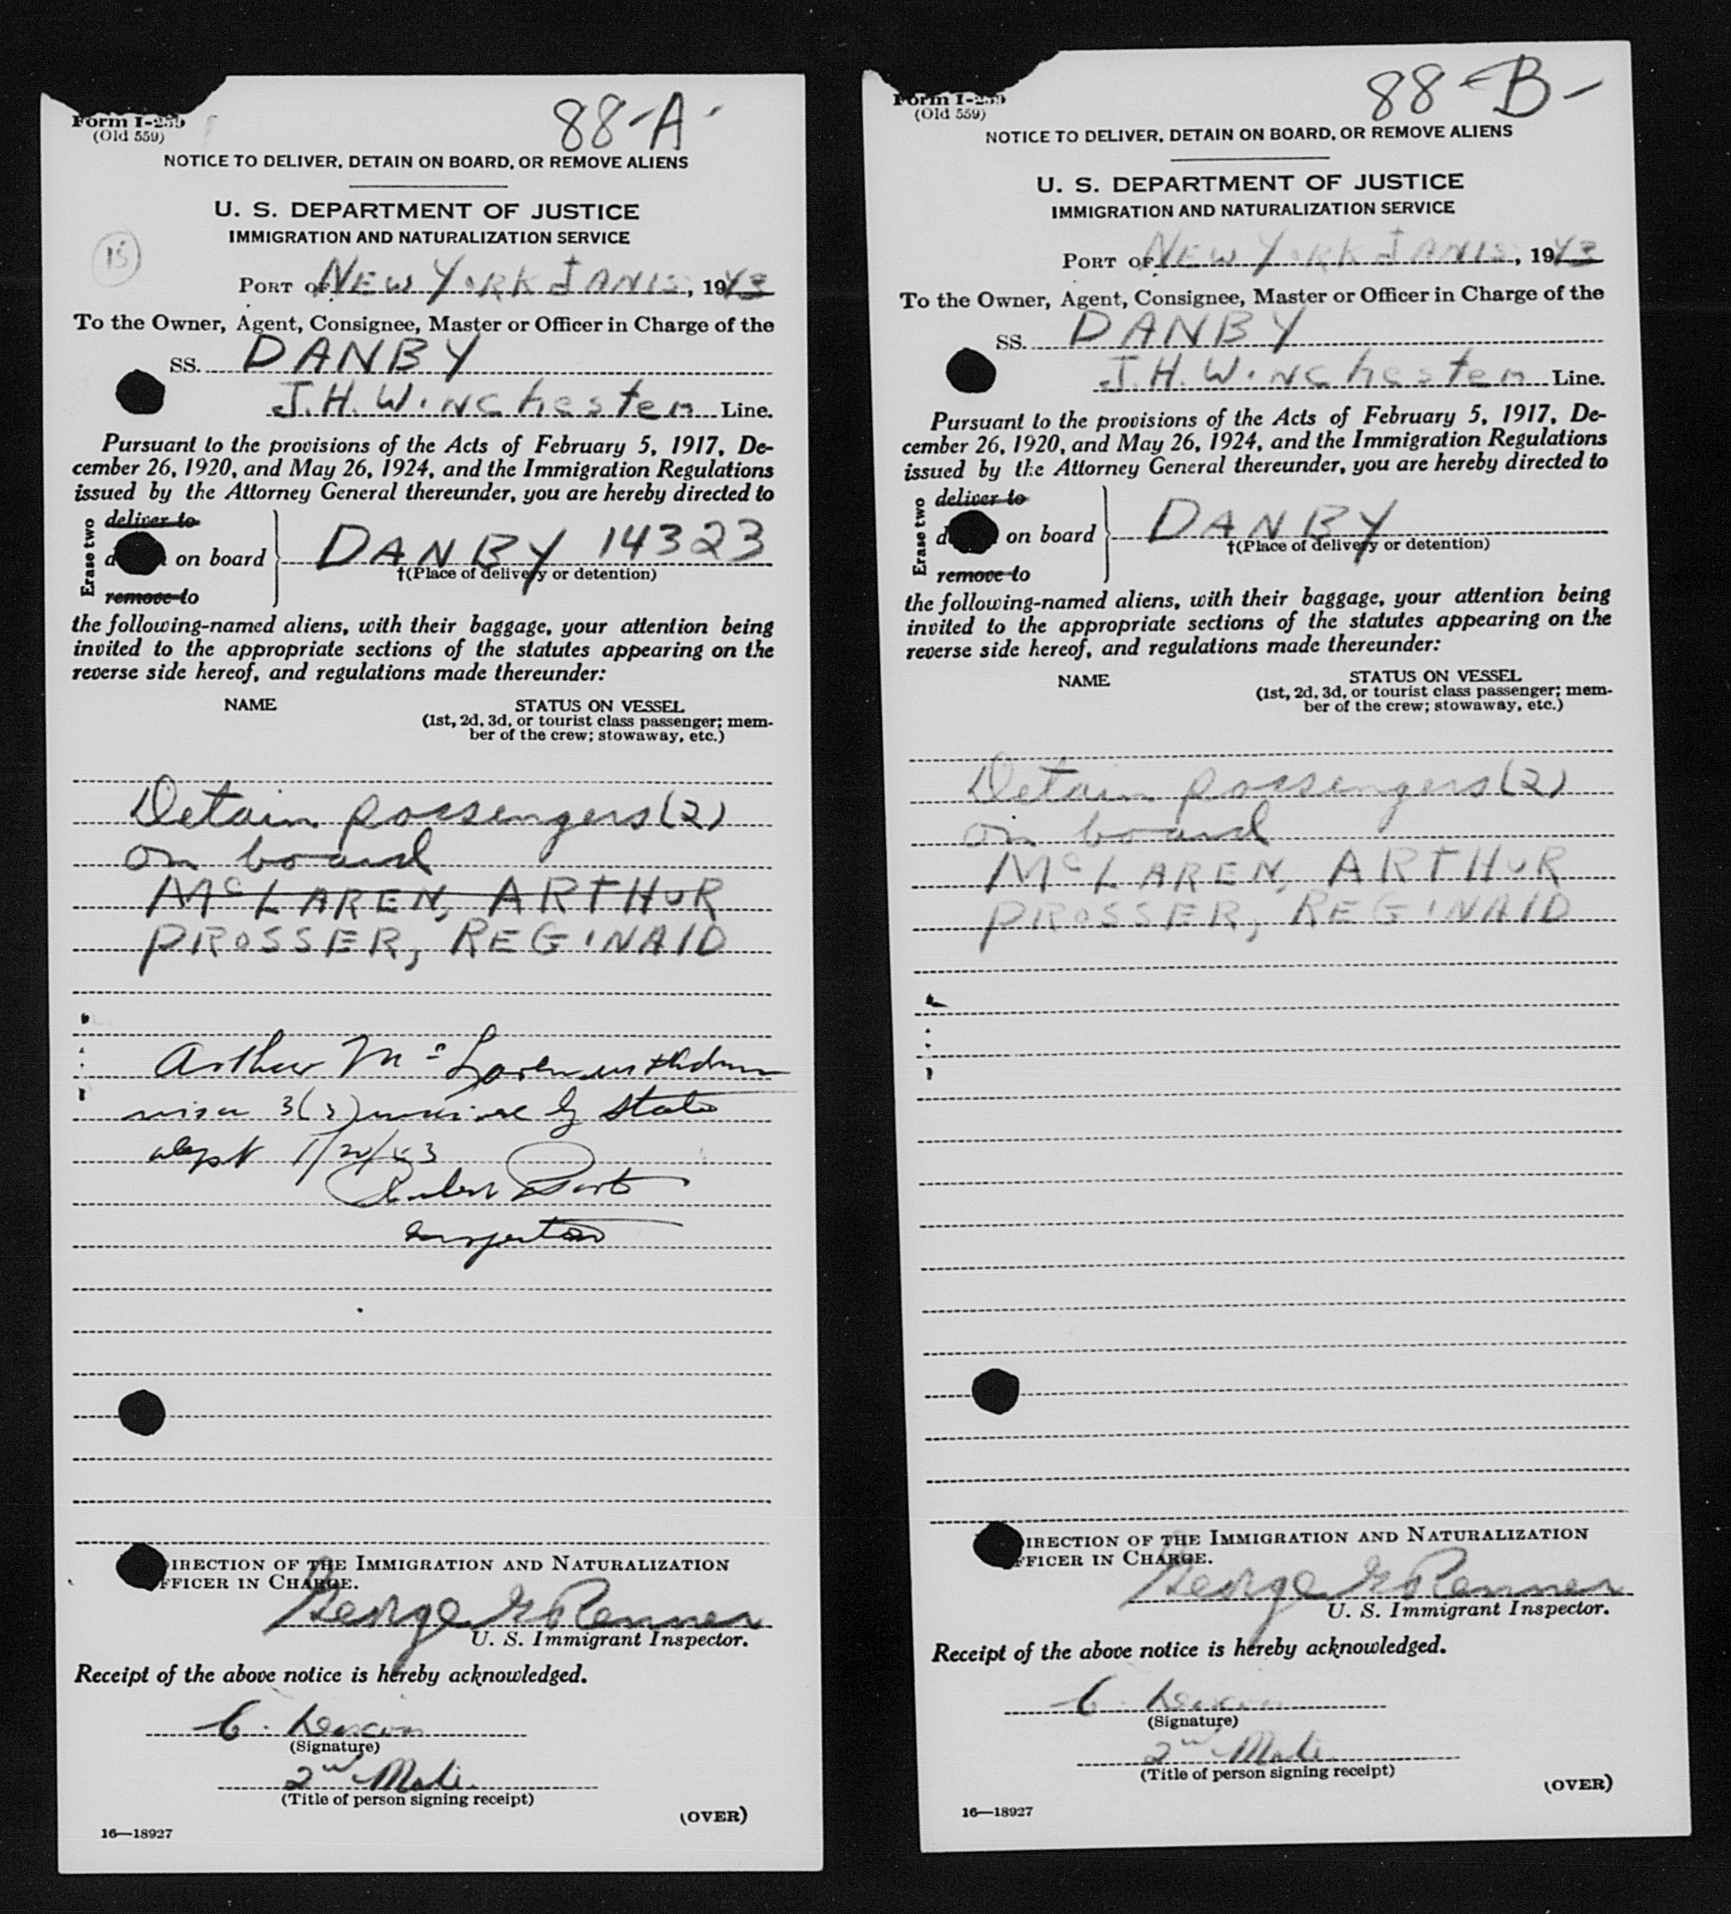 Form I-259
(Old 559)
88-A
NOTICE TO DELIVER, DETAIN ON BOARD, OR REMOVE ALIENS
U. S. DEPARTMENT OF JUSTICE
IMMIGRATION AND NATURALIZATION SERVICE
15
PORT OF NEW YORK JAN 15, 1943
To the Owner, Agent, Consignee, Master or Officer in Charge of the
SS. DANBY
J.H. Winchester Line.
Pursuant to the provisions of the Acts of February 5, 1917, De-
cember 26, 1920, and May 26, 1924, and the Immigration Regulations
issued by the Attorney General thereunder, you are hereby directed to
Erase two
deliver to
on board
remove to
DANBY 14323
†(Place of delivery or detention)
the following-named aliens, with their baggage, your attention being
invited to the appropriate sections of the statutes appearing on the
reverse side hereof, and regulations made thereunder:
NAME
STATUS ON VESSEL
(1st, 2d, 3d, or tourist class passenger; mem-
ber of the crew; stowaway, etc.)
Detain passengers (2)
on board
McLAREN, ARTHUR
PROSSER, REGINALD
Arthur McLaren
visa 3(2) by State
Dept 1/20/43
Inspector
DIRECTION OF THE IMMIGRATION AND NATURALIZATION
OFFICER IN CHARGE.
George Renner
U. S. Immigrant Inspector.
Receipt of the above notice is hereby acknowledged.
C. Deacon
(Signature)
2nd Mate.
(Title of person signing receipt)
(OVER)
16—18927
Form I-259
(Old 559)
88-B-
NOTICE TO DELIVER, DETAIN ON BOARD, OR REMOVE ALIENS
U. S. DEPARTMENT OF JUSTICE
IMMIGRATION AND NATURALIZATION SERVICE
PORT OF NEW YORK JAN 15, 1943
To the Owner, Agent, Consignee, Master or Officer in Charge of the
SS. DANBY
J.H. Winchester Line.
Pursuant to the provisions of the Acts of February 5, 1917, De-
cember 26, 1920, and May 26, 1924, and the Immigration Regulations
issued by the Attorney General thereunder, you are hereby directed to
Erase two
deliver to
on board
remove to
DANBY
†(Place of delivery or detention)
the following-named aliens, with their baggage, your attention being
invited to the appropriate sections of the statutes appearing on the
reverse side hereof, and regulations made thereunder:
NAME
STATUS ON VESSEL
(1st, 2d, 3d, or tourist class passenger; mem-
ber of the crew; stowaway, etc.)
Detain passengers (2)
on board
McLAREN, ARTHUR
PROSSER, REGINALD
DIRECTION OF THE IMMIGRATION AND NATURALIZATION
OFFICER IN CHARGE.
George Renner
U. S. Immigrant Inspector.
Receipt of the above notice is hereby acknowledged.
C. Deacon
(Signature)
2nd Mate.
(Title of person signing receipt)
(OVER)
16—18927